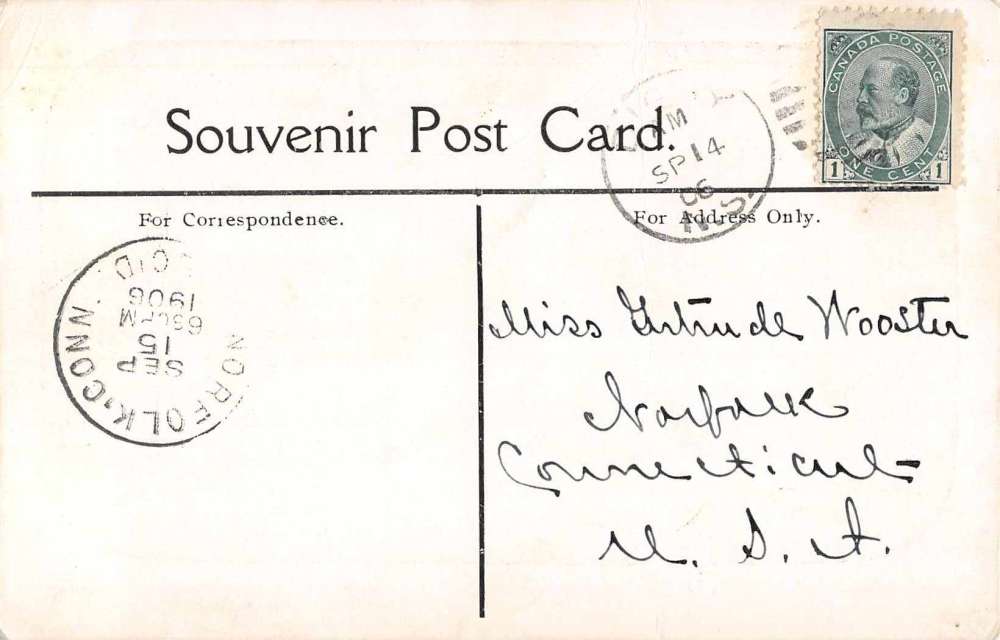 CANADA POSTAGE
ONE CENT
1 1
Souvenir Post Card.
AM
SP 14
06
N.S.
For Correspondence.
For Address Only.
NORFOLK, CONN.
SEP
15
1906
REC'D.
Miss Gertrude Wooster
Norfolk
Connecticut
U. S. A.